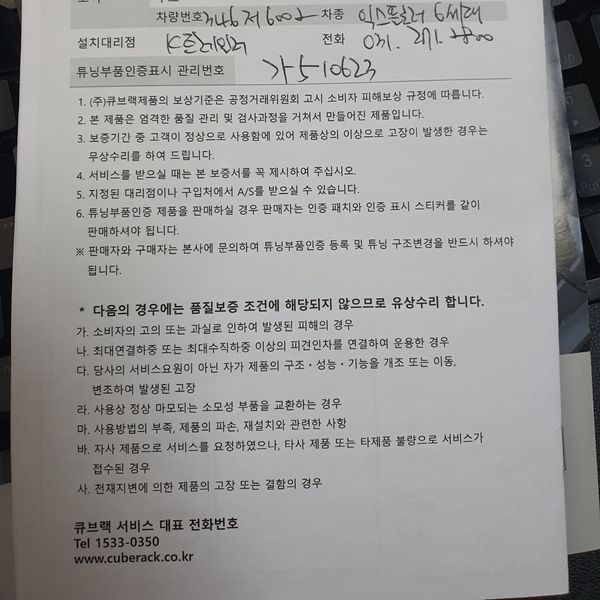 차량번호 346저6002 차종 익스플로러 6세대
설치대리점 K트레일러 전화 031. 271. 2800
튜닝부품인증표시 관리번호 가5-10623
1. (주)큐브랙제품의 보상기준은 공정거래위원회 고시 소비자 피해보상 규정에 따릅니다.
2. 본 제품은 엄격한 품질 관리 및 검사과정을 거쳐서 만들어진 제품입니다.
3. 보증기간 중 고객이 정상으로 사용함에 있어 제품상의 이상으로 고장이 발생한 경우는
무상수리를 하여 드립니다.
4. 서비스를 받으실 때는 본 보증서를 꼭 제시하여 주십시오.
5. 지정된 대리점이나 구입처에서 A/S를 받으실 수 있습니다.
6. 튜닝부품인증 제품을 판매하실 경우 판매자는 인증 패치와 인증 표시 스티커를 같이
판매하셔야 됩니다.
※ 판매자와 구매자는 본사에 문의하여 튜닝부품인증 등록 및 튜닝 구조변경을 반드시 하셔야
됩니다.
* 다음의 경우에는 품질보증 조건에 해당되지 않으므로 유상수리 합니다.
가. 소비자의 고의 또는 과실로 인하여 발생된 피해의 경우
나. 최대연결하중 또는 최대수직하중 이상의 피견인차를 연결하여 운용한 경우
다. 당사의 서비스요원이 아닌 자가 제품의 구조・성능・기능을 개조 또는 이동,
변조하여 발생된 고장
라. 사용상 정상 마모되는 소모성 부품을 교환하는 경우
마. 사용방법의 부족, 제품의 파손, 재설치와 관련한 사항
바. 자사 제품으로 서비스를 요청하였으나, 타사 제품 또는 타제품 불량으로 서비스가
접수된 경우
사. 천재지변에 의한 제품의 고장 또는 결함의 경우
큐브랙 서비스 대표 전화번호
Tel 1533-0350
www.cuberack.co.kr